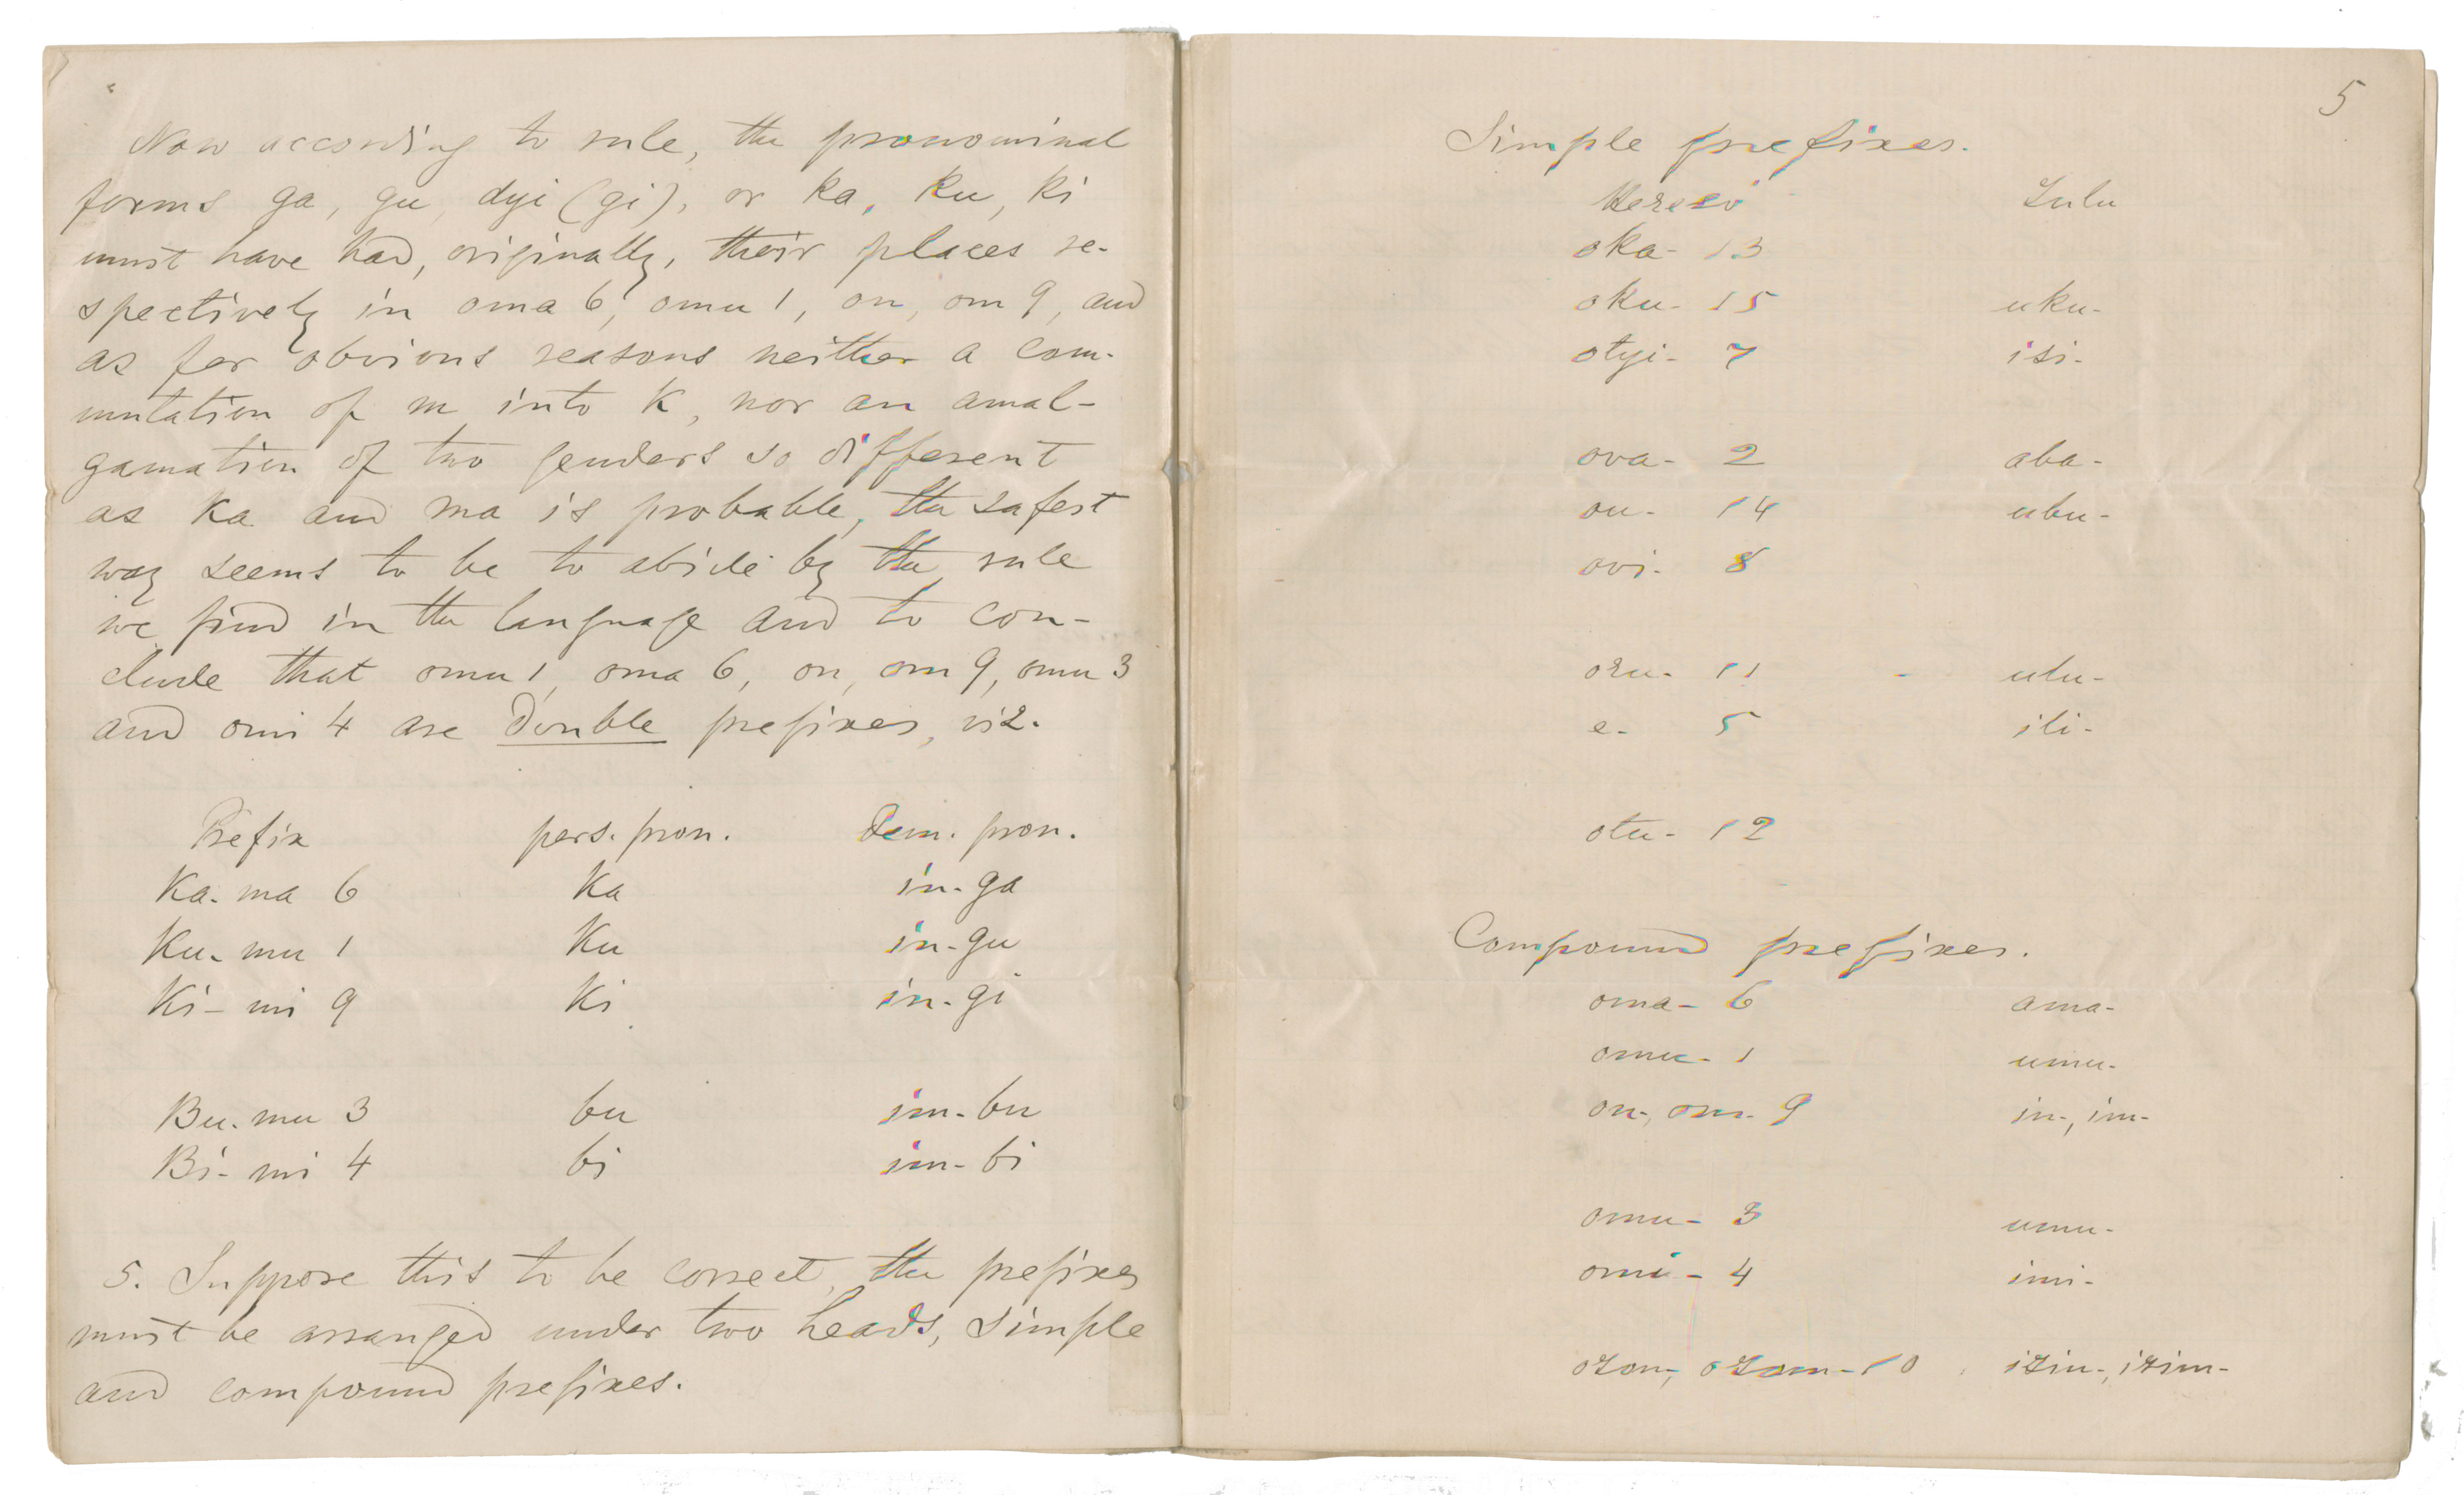 Now according to rule, the pronominal
forms ga, gu, dyi (gi), or ka, ku, ki
must have had, originally, their places re-
spectively in oma 6, omu 1, on, om 9, and
as for obvious reasons neither a com-
mutation of m into k, nor an amal-
gamation of two genders so different
as ka and ma is probable, the safest
way seems to be to abide by the rule
we find in the language and to con-
clude that omu 1, oma 6, on, om 9, omu 3
and omi 4 are Double prefixes, viz.
Prefix pers. pron. Dem. pron.
Ka-ma 6 Ka in-ga
Ku-mu 1 Ku in-gu
Ki-mi 9 Ki in-gi
Bu-mu 3 bu im-bu
Bi-mi 4 bi im-bi
5. Suppose this to be correct, the prefixes
must be arranged under two heads, simple
and compound prefixes.
5
Simple prefixes.
Herero Zulu
oka- 13
oku- 15 uku-
otyi- 7 isi-
ova- 2 aba-
ou- 14 ubu-
ovi- 8
oru- 11 - ulu-
e- 5 ili-
otu- 12
Compound prefixes.
oma- 6 ama-
omu- 1 umu-
on-, om- 9 in-, im-
omu- 3 umu-
omi- 4 imi-
ozon-, ozom- 10 izin-, izim-